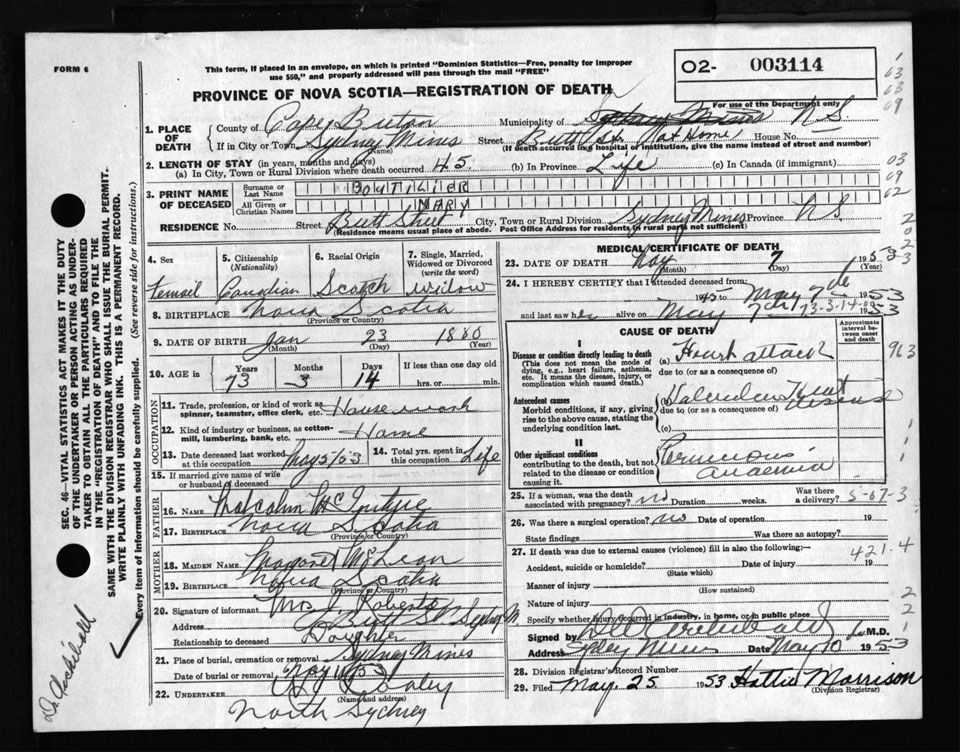 FORM 6
This form, if placed in an envelope, on which is printed "Dominion Statistics—Free, penalty for improper
use $50," and properly addressed will pass through the mail "FREE"
PROVINCE OF NOVA SCOTIA—REGISTRATION OF DEATH
02- 003114
For use of the Department only
1. PLACE OF DEATH
County of Cape Breton Municipality of N.S.
If in City or Town Sydney Mines Street Butt St. (at Home) House No.
(Name) (If death occurred in a hospital or institution, give the name instead of street and number)
2. LENGTH OF STAY (in years, months and days)
(a) In City, Town or Rural Division where death occurred 45 (b) In Province Life (c) In Canada (if immigrant)
3. PRINT NAME OF DECEASED
Surname or Last Name BOUTILIER
All Given or Christian Names MARY
RESIDENCE No. Street Butt Street City, Town or Rural Division Sydney Mines Province N.S.
(Residence means usual place of abode. Post Office Address for residents in rural parts not sufficient)
4. Sex
5. Citizenship (Nationality)
6. Racial Origin
7. Single, Married, Widowed or Divorced (write the word)
Femail Canadian Scotch widow
8. BIRTHPLACE Nova Scotia
(Province or Country)
9. DATE OF BIRTH Jan 23 1880
(Month) (Day) (Year)
10. AGE in Years Months Days If less than one day
73 3 14 hrs. or min.
OCCUPATION
11. Trade, profession, or kind of work as spinner, teamster, office clerk, etc. House work
12. Kind of industry or business, as cotton-mill, lumbering, bank, etc. Home
13. Date deceased last worked at this occupation May 5/53
14. Total yrs. spent in this occupation Life
15. If married give name of wife or husband of deceased
FATHER
16. NAME Malcolm
17. BIRTHPLACE Nova Scotia
(Province or Country)
MOTHER
18. MAIDEN NAME Margaret McLean
19. BIRTHPLACE Nova Scotia
(Province or Country)
20. Signature of informant Mrs J. Roberts
Address Butt St Sydney M.
Relationship to deceased Daughter
21. Place of burial, cremation or removal Sydney Mines
Date of burial or removal May 53
22. UNDERTAKER
(Name and address)
North Sydney
MEDICAL CERTIFICATE OF DEATH
23. DATE OF DEATH May 7 1953
(Month) (Day) (Year)
24. I HEREBY CERTIFY that I attended deceased from:
1945 to May 7th 1953
and last saw her alive on May 7 1953
CAUSE OF DEATH
Approximate interval between onset and death
I
Disease or condition directly leading to death
(This does not mean the mode of dying, e.g., heart failure, asthenia, etc. It means the disease, injury, or complication which caused death.)
(a) Heart attack
due to (or as a consequence of)
Antecedent causes
Morbid conditions, if any, giving rise to the above cause, stating the underlying condition last.
(b) Valvular Heart disease
due to (or as a consequence of)
(c)
II
Other significant conditions
contributing to the death, but not related to the disease or condition causing it.
Pernicious Anaemia
25. If a woman, was the death associated with pregnancy? no Duration weeks. Was there a delivery?
26. Was there a surgical operation? no Date of operation 19
State findings Was there an autopsy?
27. If death was due to external causes (violence) fill in also the following:—
Accident, suicide or homicide? Date of injury 19
(State which)
Manner of injury
(How sustained)
Nature of injury
Specify whether injury occurred in industry, in home, or in public place
Signed by M.D.
Address Sydney Mines Date May 10 1953
28. Division Registrar's Record Number
29. Filed May 25 1953 Hattie Morrison
(Division Registrar)
963
5-07-3
421.4
SEC. 46—VITAL STATISTICS ACT MAKES IT THE DUTY
OF THE UNDERTAKER OR PERSON ACTING AS UNDER-
TAKER TO OBTAIN ALL THE PARTICULARS REQUIRED
IN THE "REGISTRATION OF DEATH" AND TO FILE THE
SAME WITH THE DIVISION REGISTRAR WHO SHALL ISSUE THE BURIAL PERMIT.
WRITE PLAINLY WITH UNFADING INK. THIS IS A PERMANENT RECORD.
Every item of information should be carefully supplied. (See reverse side for instructions.)